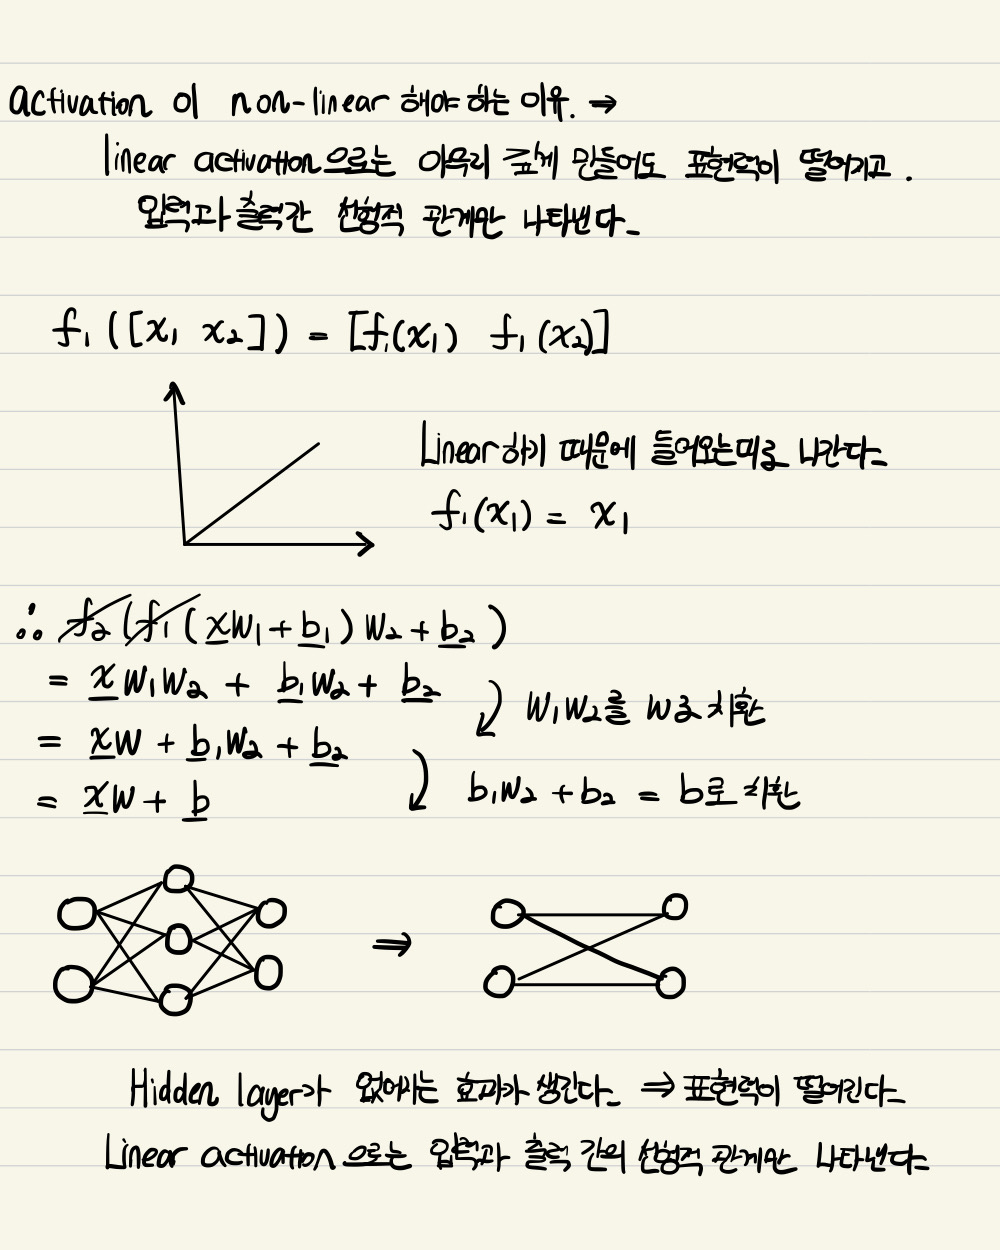 activation 이 non-linear 해야 하는 이유. ⇒
linear activation으로는 아무리 깊게 만들어도 표현력이 떨어지고.
입력과 출력간 선형적 관계만 나타낸다.
f₁([x₁ x₂]) = [f₁(x₁) f₁(x₂)]
Linear하기 때문에 들어오는대로 나간다.
f₁(x₁) = x₁
∴ f₂(f₁(xW₁+b₁)W₂+b₂)
= xW₁W₂ + b₁W₂ + b₂
W₁W₂를 W로 치환
= xW + b₁W₂ + b₂
b₁W₂ + b₂ = b로 치환
= xW + b
⇒
Hidden layer가 없어지는 효과가 생긴다. ⇒ 표현력이 떨어진다.
Linear activation으로는 입력과 출력 간의 선형적 관계만 나타낸다.